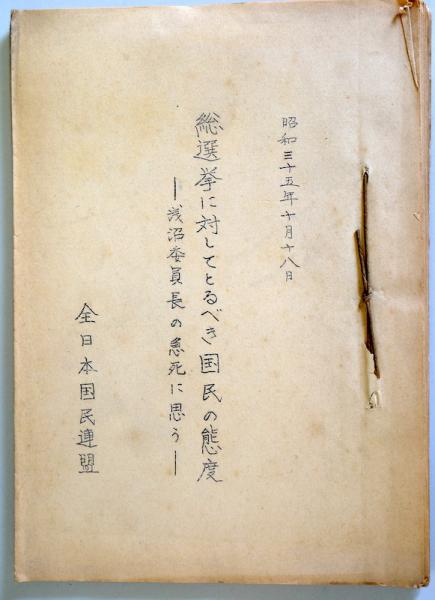 昭和三十五年十月十八日
総選挙に対してとるべき国民の態度
―浅沼委員長の急死に思う―
全日本国民連盟